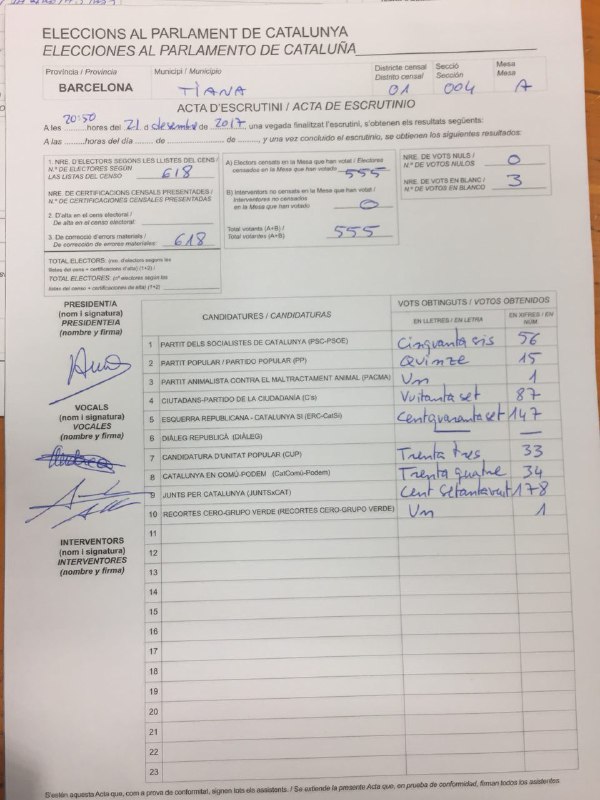 ELECCIONS AL PARLAMENT DE CATALUNYA
ELECCIONES AL PARLAMENTO DE CATALUÑA
Província / Provincia
BARCELONA
Municipi / Municipio
TIANA
Districte censal
Distrito censal
01
Secció
Sección
004
Mesa
Mesa
A
ACTA D'ESCRUTINI / ACTA DE ESCRUTINIO
A les 20:50 hores del 21 desembre de 2017 una vegada finalitzat l'escrutini, s'obtenen els resultats següents:
A las ......... horas del día ....... de .......................... de ........... y una vez concluido el escrutinio, se obtienen los siguientes resultados:
1. NRE. D'ELECTORS SEGONS LES LLISTES DEL CENS /
N.º DE ELECTORES SEGÚN
LAS LISTAS DEL CENSO 618
NRE. DE CERTIFICACIONS CENSALS PRESENTADES /
N.º DE CERTIFICACIONES CENSALES PRESENTADAS
2. D'alta en el cens electoral /
De alta en el censo electoral:
3. De correcció d'errors materials /
De corrección de errores materiales: 618
TOTAL ELECTORS: (nre. d'electors segons les
llistes del cens + certificacions d'alta) (1+2) /
TOTAL ELECTORES: (nº electores según las
listas del censo + certificaciones de alta) (1+2)
A) Electors censats en la Mesa que han votat / Electores
censados en la Mesa que han votado 555
B) Interventors no censats en la Mesa que han votat /
Interventores no censados
en la Mesa que han votado 0
Total votants (A+B) /
Total votantes (A+B) 555
NRE. DE VOTS NULS /
N.º DE VOTOS NULOS 0
NRE. DE VOTS EN BLANC /
N.º DE VOTOS EN BLANCO 3
PRESIDENT/A
(nom i signatura)
PRESIDENTE/A
(nombre y firma)
VOCALS
(nom i signatura)
VOCALES
(nombre y firma)
INTERVENTORS
(nom i signatura)
INTERVENTORES
(nombre y firma)
CANDIDATURES / CANDIDATURAS
VOTS OBTINGUTS / VOTOS OBTENIDOS
EN LLETRES / EN LETRA
EN XIFRES / EN NÚM.
1 PARTIT DELS SOCIALISTES DE CATALUNYA (PSC-PSOE) Cinquanta sis 56
2 PARTIT POPULAR / PARTIDO POPULAR (PP) Quinze 15
3 PARTIT ANIMALISTA CONTRA EL MALTRACTAMENT ANIMAL (PACMA) Un 1
4 CIUTADANS-PARTIDO DE LA CIUDADANÍA (C's) Vuitanta set 87
5 ESQUERRA REPUBLICANA - CATALUNYA SÍ (ERC-CatSí) Cent quaranta set 147
6 DIÀLEG REPUBLICÀ (DIÀLEG) — —
7 CANDIDATURA D'UNITAT POPULAR (CUP) Trenta tres 33
8 CATALUNYA EN COMÚ-PODEM (CatComú-Podem) Trenta quatre 34
9 JUNTS PER CATALUNYA (JUNTSxCAT) Cent setanta vuit 178
10 RECORTES CERO-GRUPO VERDE (RECORTES CERO-GRUPO VERDE) Un 1
11
12
13
14
15
16
17
18
19
20
21
22
23
S'estén aquesta Acta que, com a prova de conformitat, signen tots els assistents. / Se extiende la presente Acta que, en prueba de conformidad, firman todos los asistentes